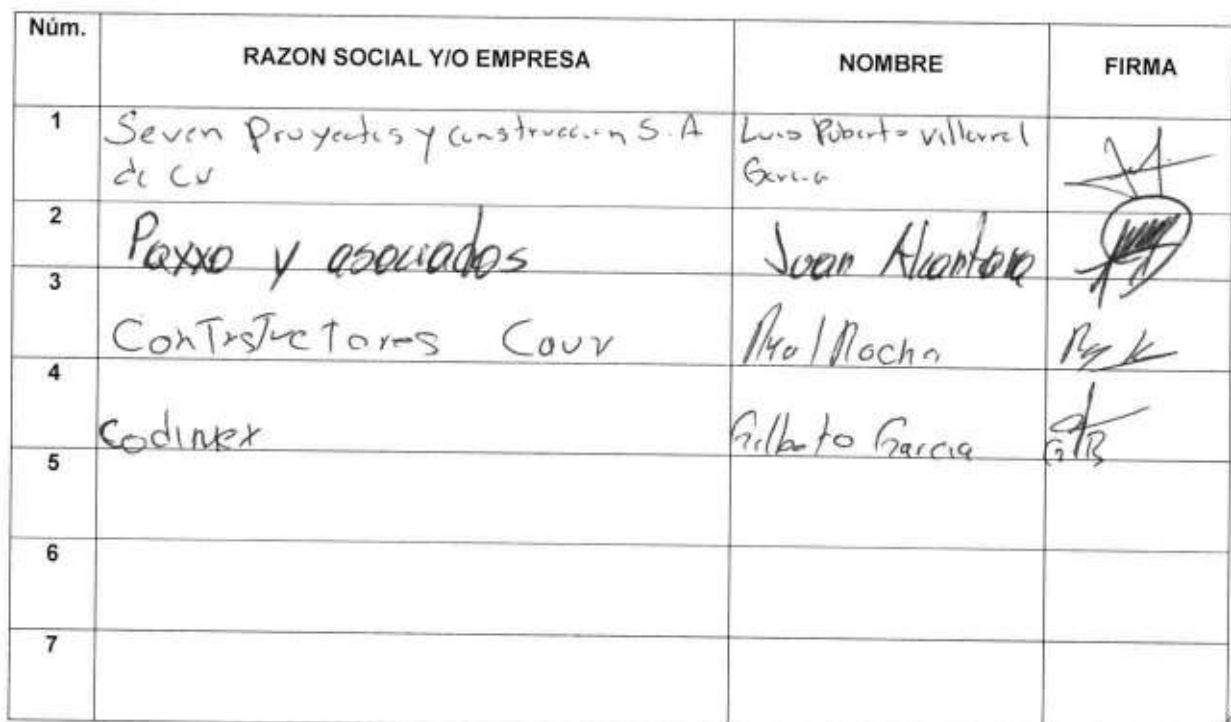 Núm. RAZON SOCIAL Y/O EMPRESA NOMBRE FIRMA
1 Seven Proyectos y construccion S.A Luis Roberto Villarreal
de CV Garcia
2 Paxxo y asociados Juan Alcantara
3
Cauv Rocha
4
Codimex Gilberto Garcia
5
6
7